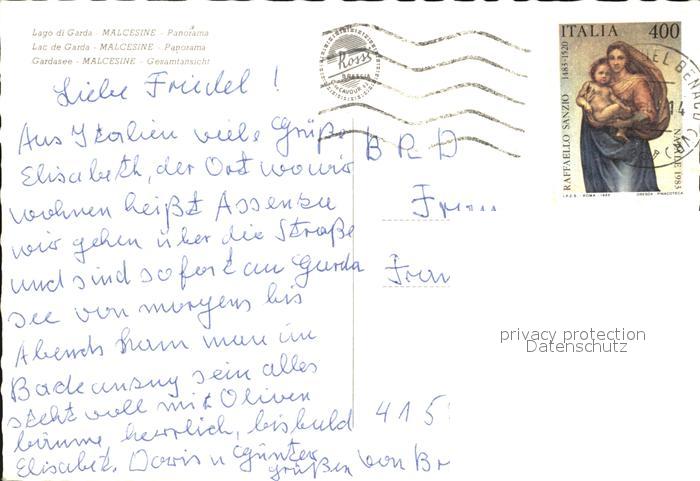 Lago di Garda - MALCESINE - Panorama
Lac de Garda - MALCESINE - Paporama
Gardasee - MALCESINE - Gesamtansicht
Liebe Friedel !
Aus Italien viele Grüße
Elisabeth, der Ort wo wir
wohnen heißt Assenza
wir gehen über die Straße
und sind sofort am Garda
see von morgens bis
Abends kann man im
Badeanzug sein alles
steht voll mit Oliven
bäume, herrlich, bis bald
Elisabet. Doris u Günter
grüßen von Br
BRD
Frau
415
ITALIA 400
RAFFAELLO SANZIO 1483-1520
NATALE 1983
I.P.Z.S. - ROMA - 1983
DRESDA PINACOTECA
14
privacy protection
Datenschutz